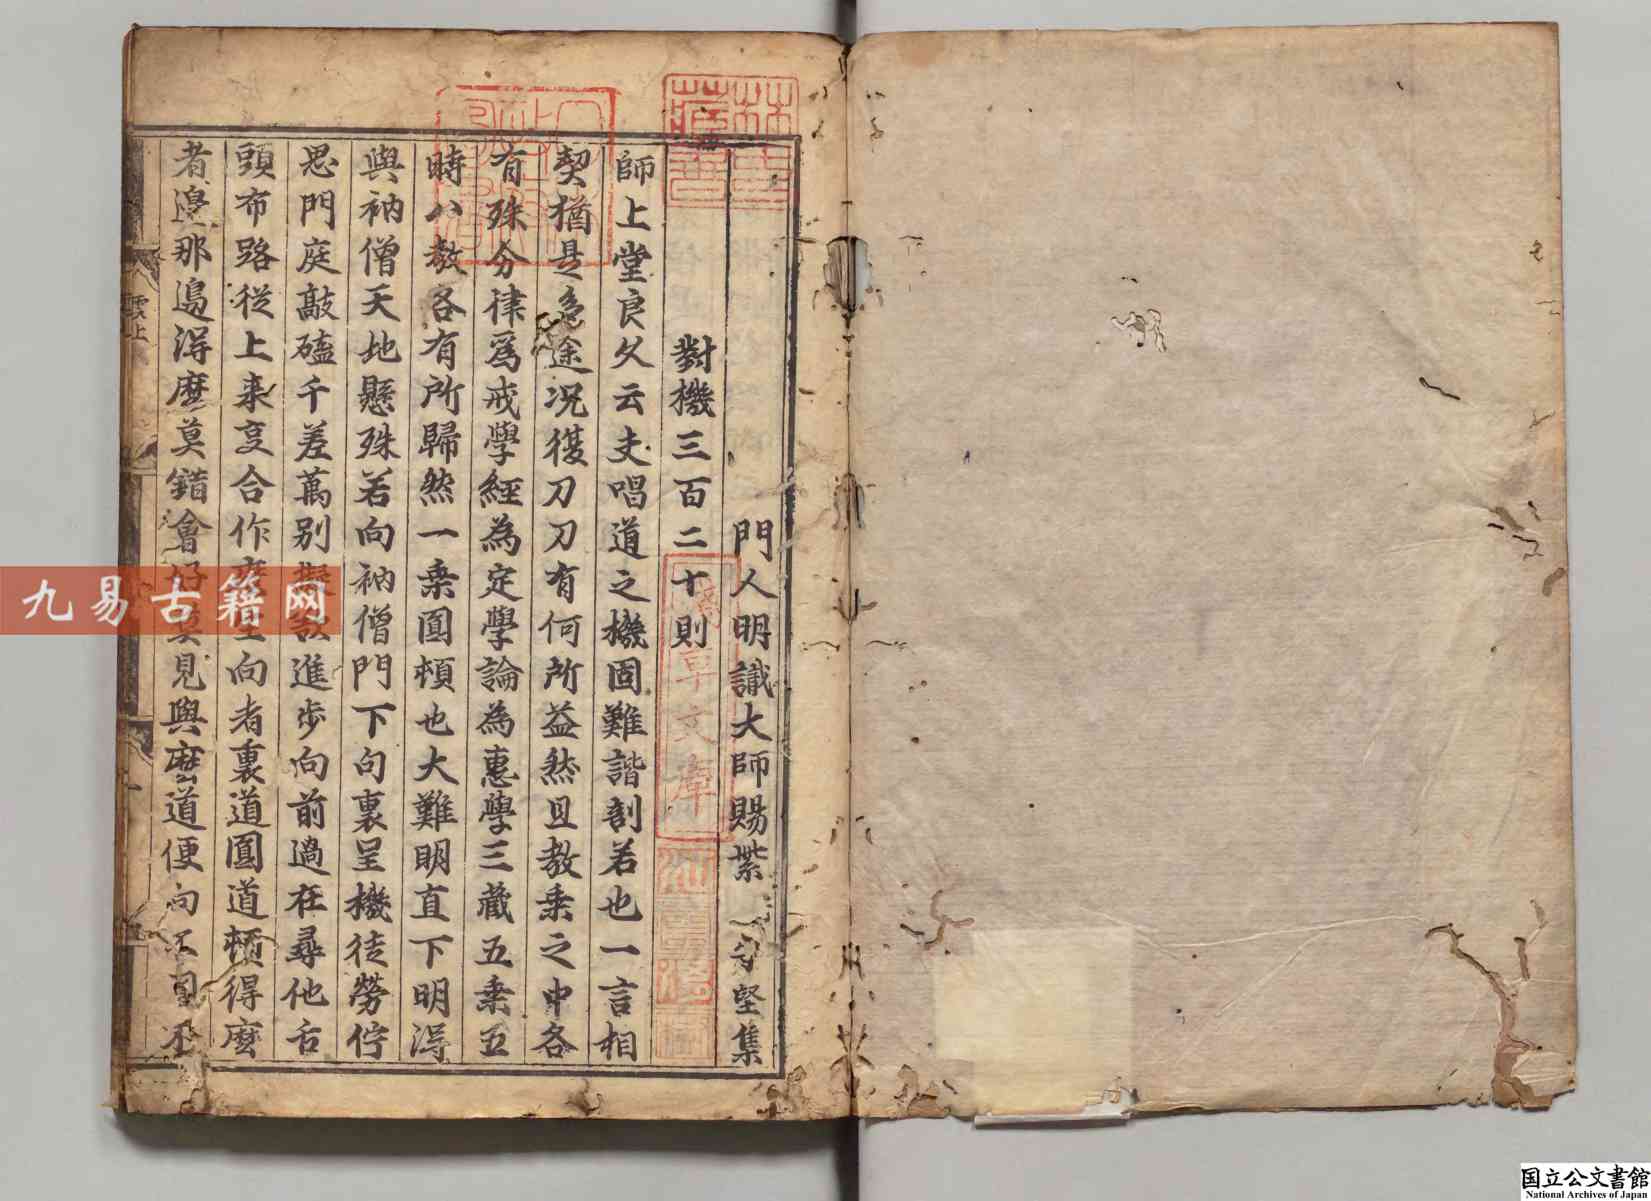 門人明識大師賜紫 守堅集
對機三百二十則
師上堂良久云夫唱道之機固難諧剖若也一言相
契猶是多途況復刀刀有何所益然且教乗之中各
有殊分律為戒學經為定學論為惠學三藏五乗五
時八教各有所歸然一乗圓頓也大難明直下明得
與衲僧天地懸殊若向衲僧門下句裏呈機徒勞佇
思門庭敲磕千差萬別擬欲進步向前過在尋他舌
頭布路從上来事合作麼生向者裏道圓道頓得麼
者邊那邊得麼莫錯會好莫見與麼道便向不圓不
雲上
九易古籍网
国立公文書館
National Archives of Japan